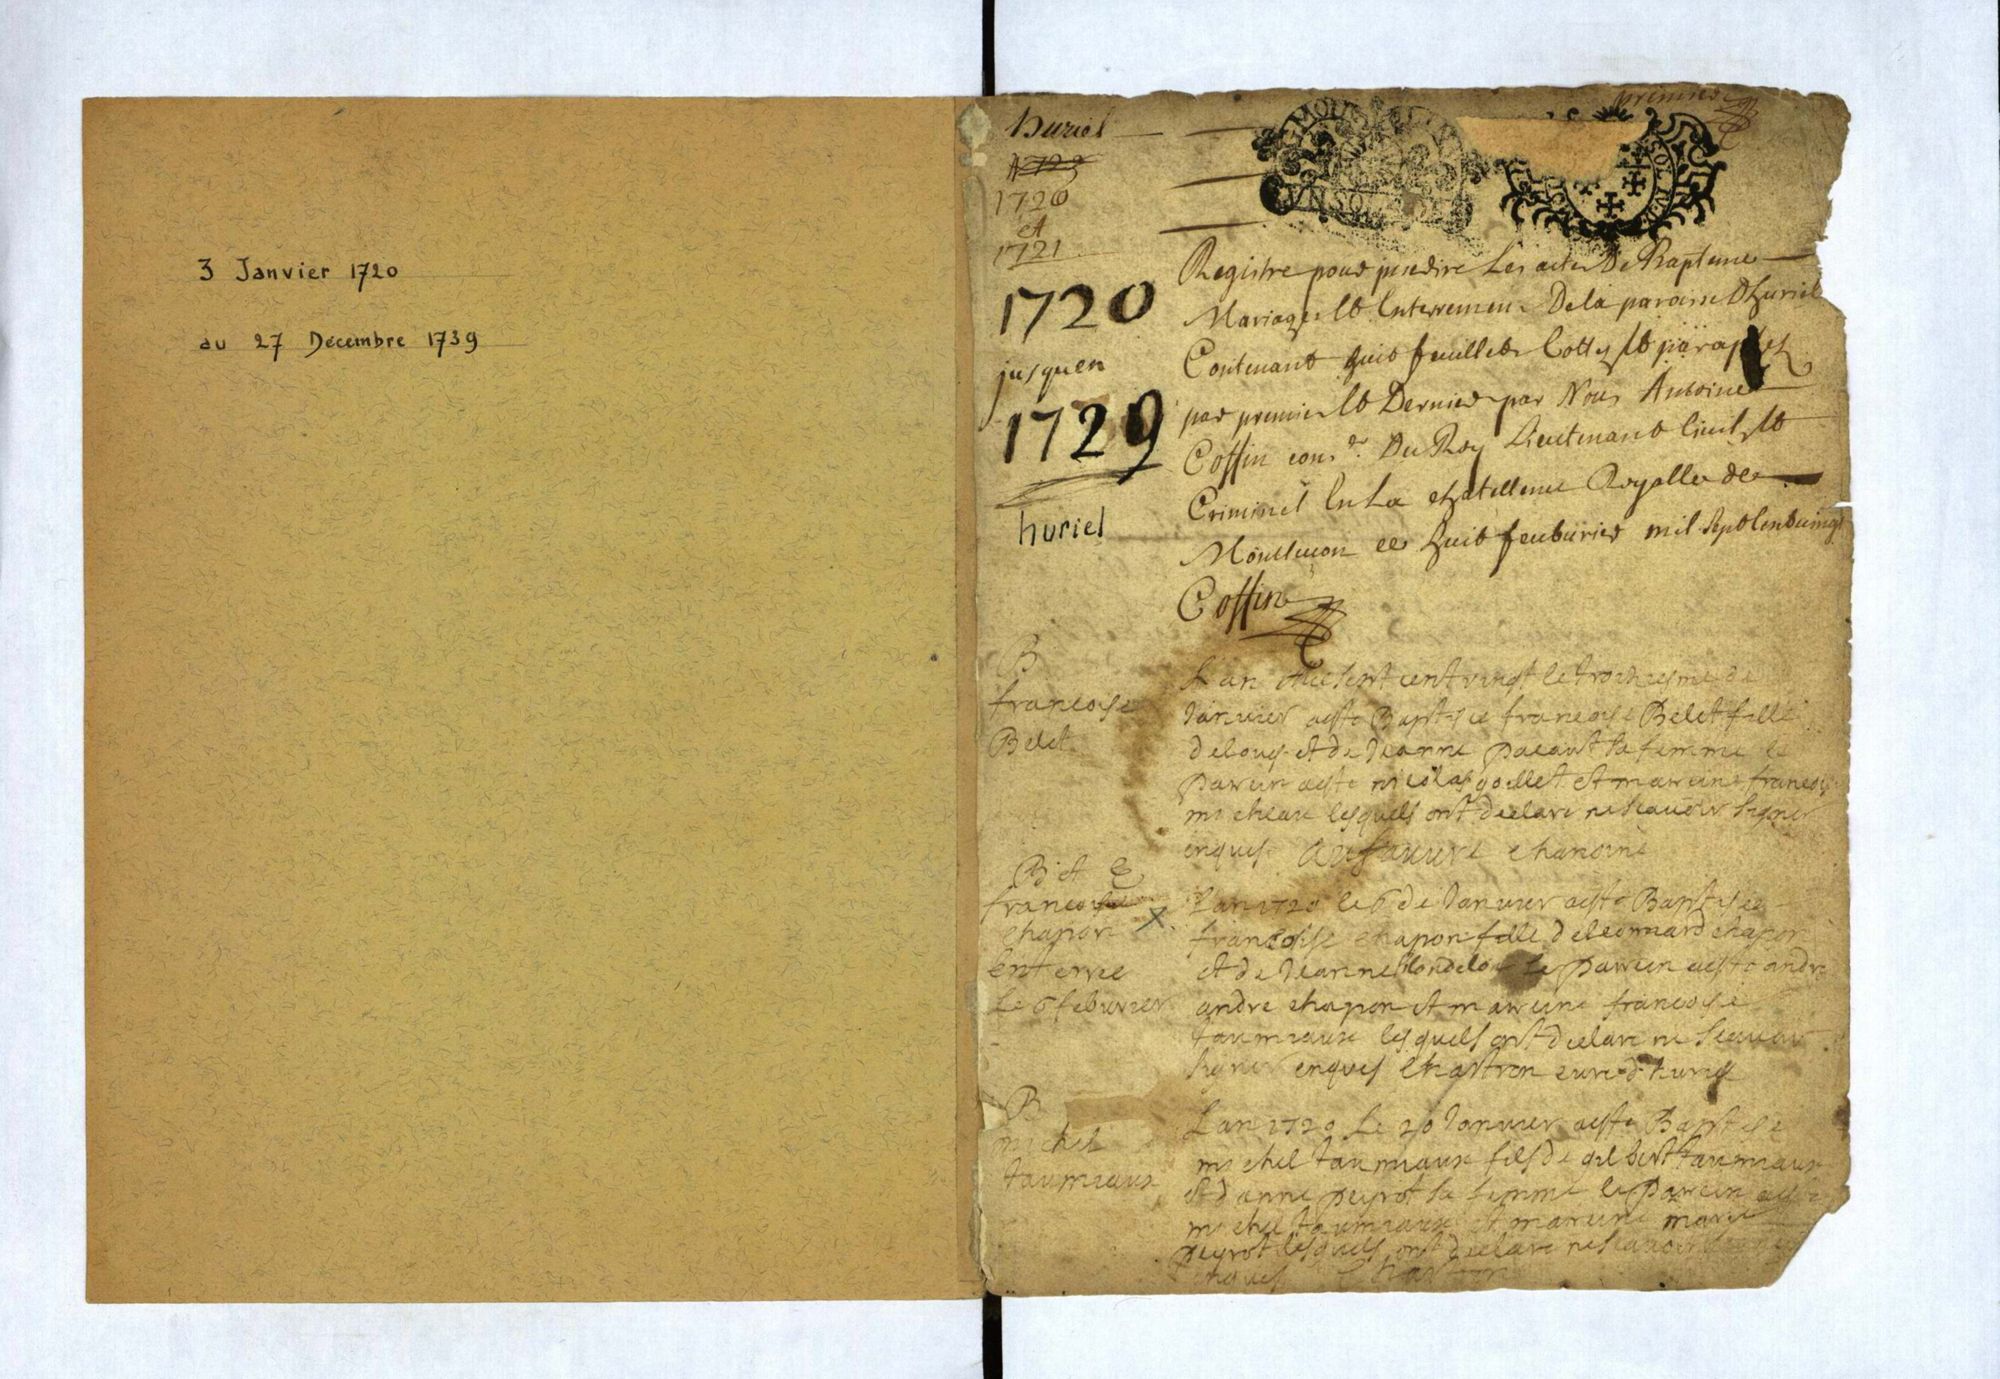 3 Janvier 1720
au 27 Décembre 1739
premier
huriel
1720
et
1721
1720
jusquen
1729
huriel
Registre pour jnscrire Les actes De Bapteme
Mariages Et Enterremens De la paroisse Dhuriel
Contenant huit feuillets Cottez Et paraphez
par premier Et Dernier par Nous Antoine
Coffin cons.er Du Roy Lieutenant Civil Et
Criminel En La chatellenie Royalle de
Montlucon ce huit feuburier mil Sept Cent vingt
Coffin
B
francoise
Belet
Lan mil sept cent vingt le troisiesme de
Janvier a este Baptisee francoise Belet fille
de louis et de Jeanne pacaut sa femme le
parein a este nicolas goillet et mareine francoise
micheau lesquels ont declare ne scavoir signer
enquis Aufauure chanoine
B et E
francoise
chapon
Enterree
Le 6 feburier
Lan 1720 le 6 de Janvier a este Baptisee
francoise chapon fille de leonnard chapon
et de Jeanne le parein a este andre
andre chapon et mareine francoise
taumiaux lesquels ont declare ne scavoir
signer enquis Chastron cure d'huriel
B
michel
taumiaux
Lan 1720 Le 20 Janvier a este Baptise
michel taumiaux fils de gilbert taumiaux
et d anne peyrot sa femme le parein a este
michel taumiaux et mareine marie
peyrot lesquels ont declare ne scavoir signer
enquis